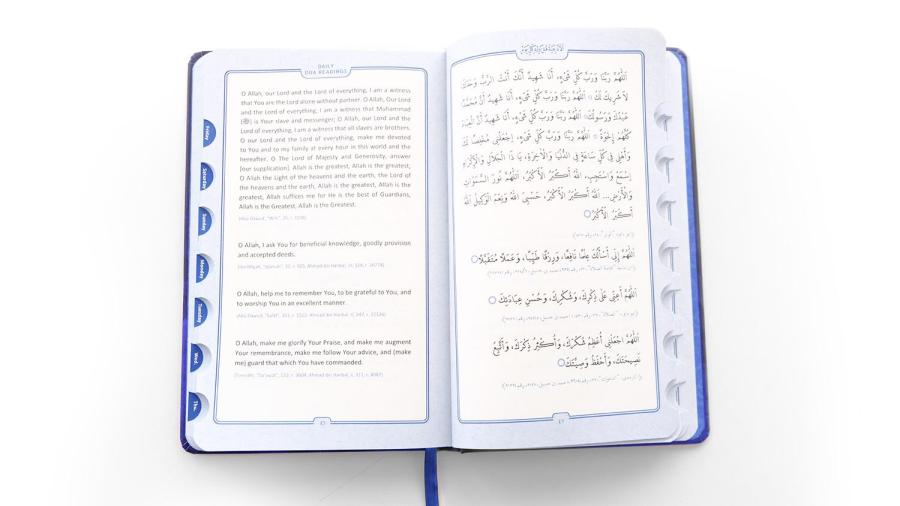 DAILY
DUA READINGS
O Allah, our Lord and the Lord of everything, I am a witness
that You are the Lord alone without partner. O Allah, Our Lord
and the Lord of everything, I am a witness that Muhammad
(ﷺ) is Your slave and messenger; O Allah, our Lord and the
Lord of everything. I am a witness that all slaves are brothers.
O our Lord and the Lord of everything, make me devoted
to You and to my family at every hour in this world and the
hereafter. O The Lord of Majesty and Generosity, answer
[our supplication]. Allah is the greatest, Allah is the greatest,
O Allah the Light of the heavens and the earth, the Lord of
the heavens and the earth, Allah is the greatest, Allah is the
greatest, Allah suffices me for He is the best of Guardians,
Allah is the Greatest, Allah is the Greatest.
O Allah, I ask You for beneficial knowledge, goodly provision
and accepted deeds.
O Allah, help me to remember You, to be grateful to You, and
to worship You in an excellent manner.
O Allah, make me glorify Your Praise, and make me augment
Your remembrance, make me follow Your advice, and (make
me) guard that which You have commanded.
Friday
Saturday
Sunday
Monday
Tuesday
Wed.
Thu.
اَللّٰهُمَّ رَبَّنَا وَرَبَّ كُلِّ شَيْءٍ، أَنَا شَهِيدٌ أَنَّكَ أَنْتَ الرَّبُّ وَحْدَكَ
لَا شَرِيكَ لَكَ اَللّٰهُمَّ رَبَّنَا وَرَبَّ كُلِّ شَيْءٍ، أَنَا شَهِيدٌ أَنَّ مُحَمَّدًا
عَبْدُكَ وَرَسُولُكَ اَللّٰهُمَّ رَبَّنَا وَرَبَّ كُلِّ شَيْءٍ، أَنَا شَهِيدٌ أَنَّ الْعِبَادَ
كُلَّهُمْ إِخْوَةٌ اَللّٰهُمَّ رَبَّنَا وَرَبَّ كُلِّ شَيْءٍ، اِجْعَلْنِي مُخْلِصًا لَكَ
وَأَهْلِي فِي كُلِّ سَاعَةٍ فِي الدُّنْيَا وَالْآخِرَةِ، يَا ذَا الْجَلَالِ وَالْإِكْرَامِ
اِسْمَعْ وَاسْتَجِبْ، اَللّٰهُ أَكْبَرُ الْأَكْبَرُ، اَللّٰهُمَّ نُورَ السَّمٰوَاتِ
وَالْأَرْضِ... اَللّٰهُ أَكْبَرُ الْأَكْبَرُ، حَسْبِيَ اللّٰهُ وَنِعْمَ الْوَكِيلُ اَللّٰهُ
أَكْبَرُ الْأَكْبَرُ
اَللّٰهُمَّ إِنِّي أَسْأَلُكَ عِلْمًا نَافِعًا، وَرِزْقًا طَيِّبًا، وَعَمَلًا مُتَقَبَّلًا
اَللّٰهُمَّ أَعِنِّي عَلَى ذِكْرِكَ، وَشُكْرِكَ، وَحُسْنِ عِبَادَتِكَ
اَللّٰهُمَّ اجْعَلْنِي أُعَظِّمُ شُكْرَكَ، وَأُكْثِرُ ذِكْرَكَ، وَأَتَّبِعُ
نَصِيحَتَكَ، وَأَحْفَظُ وَصِيَّتَكَ